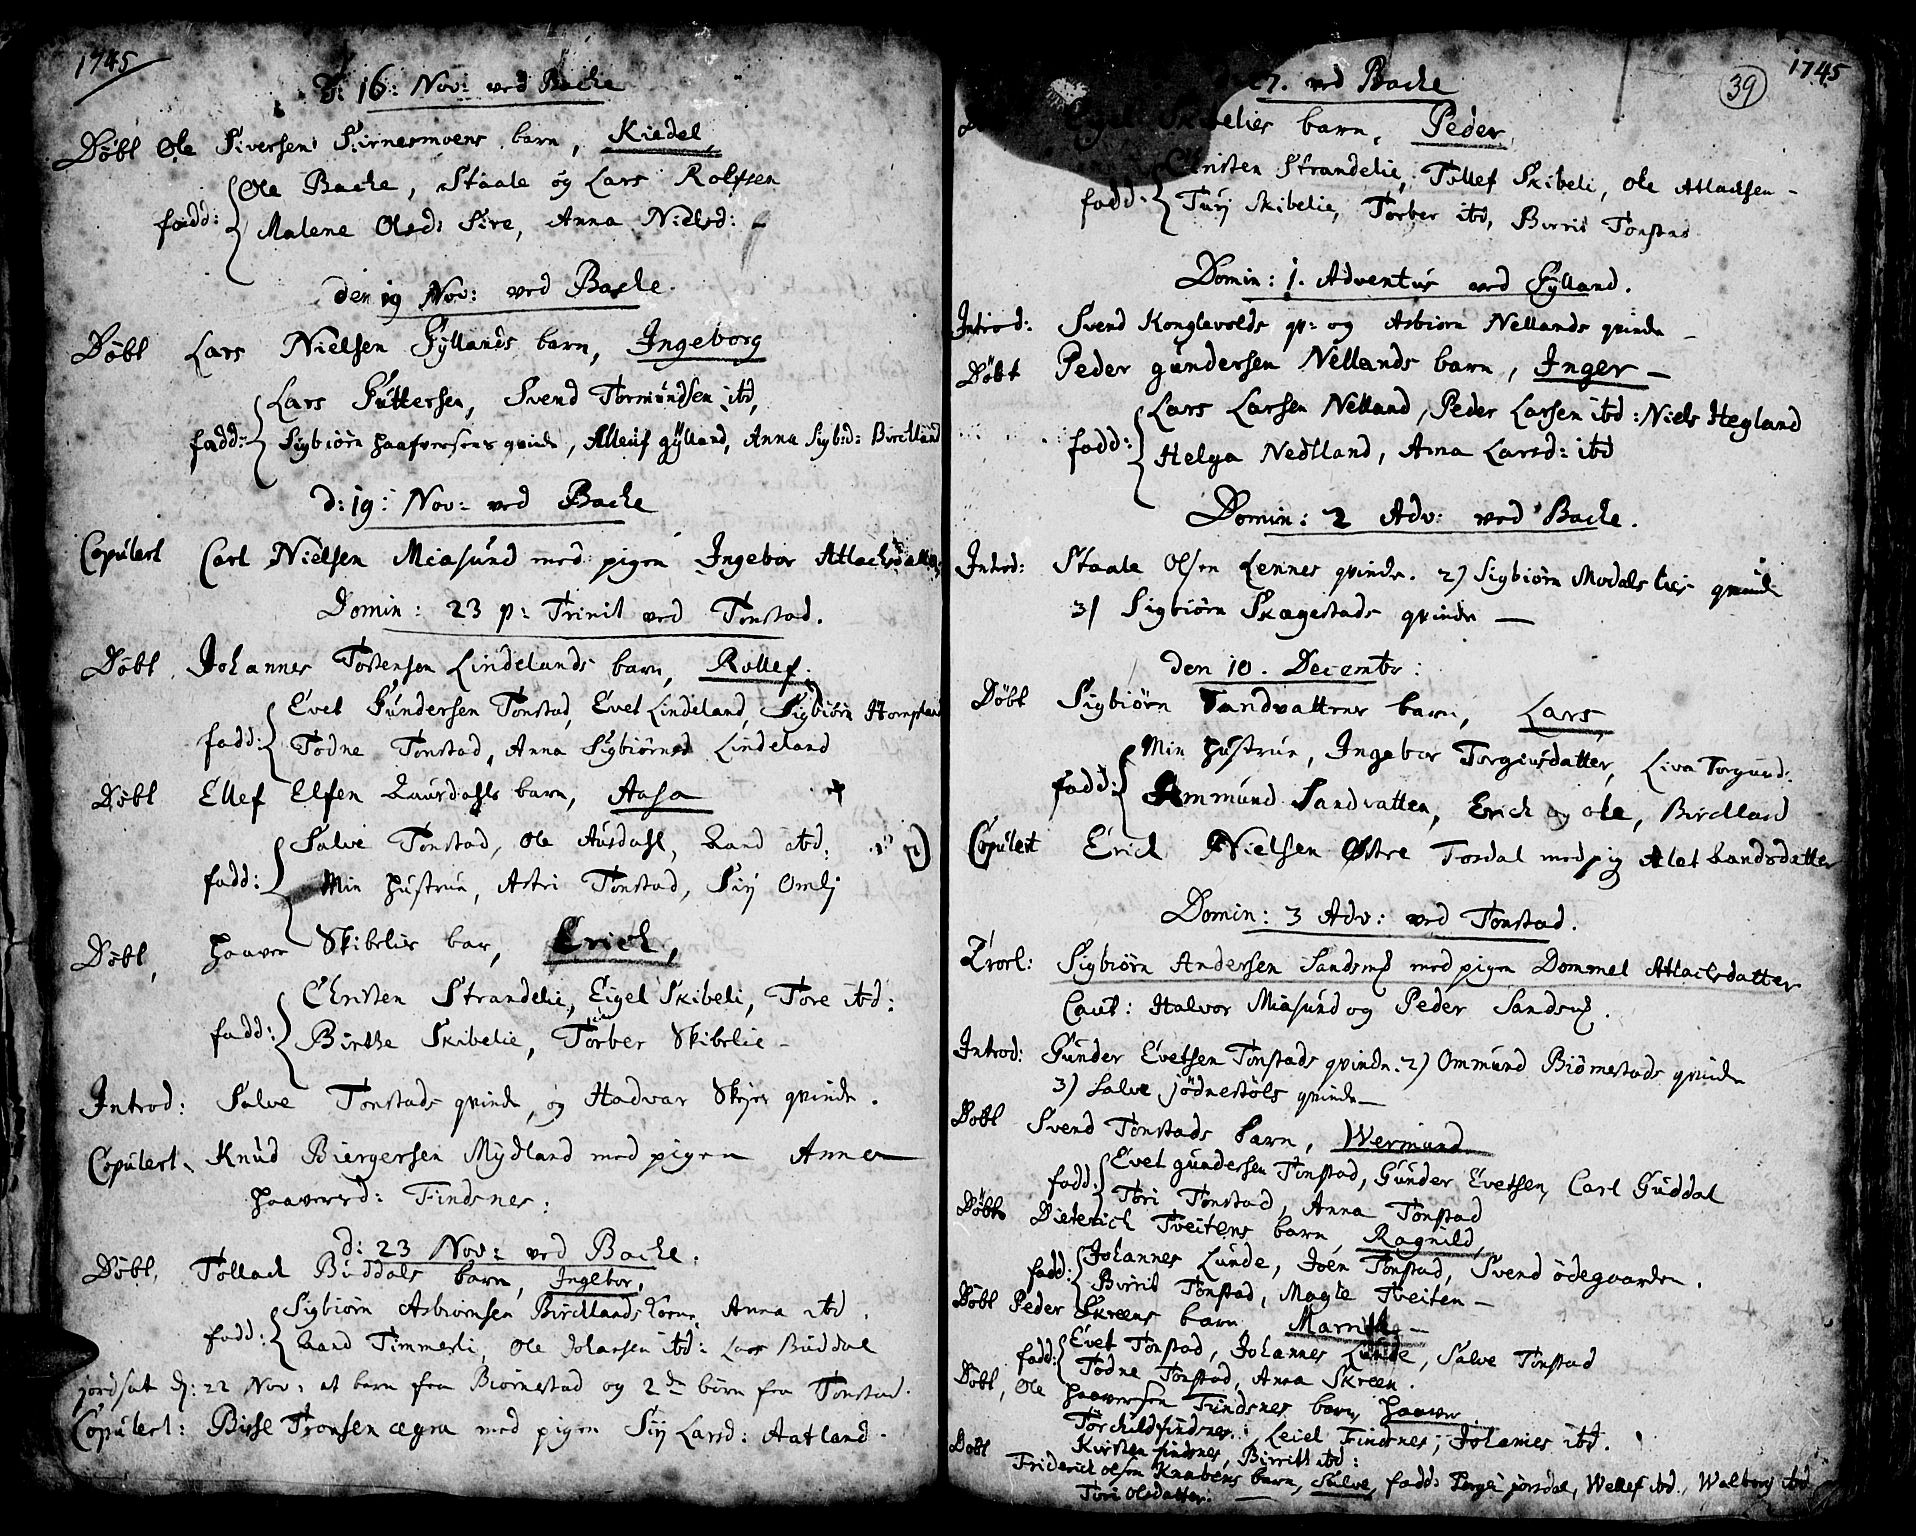 1745
D: 16: Nov: ved Bache
Døbt Ole Siversens Sirnesmoens barn, Kiedel,
Ole Bache, Staale og Lars Rolfsen
fadd: Malene Olsd: Sire, Anna Nielsd:
den 19 Nov: ved Bache.
Døbt Lars Nielsen Gyllands barn, Ingeborg
Lars Guttersen, Svend Tormundsen ibd,
fadd: Sigbiörn Haafversens qvinde, Alleuf gÿlland, Anna Sigbd: Birckland
d: 19: Nov: ved Bache
Copulert Carl Nielsen Miasund med pigen Ingebor Atlachsdatter
Domin: 23 p: Trinit ved Tonstad.
Døbt Johannes Tostensen Lindelands barn, Rollef.
Evet Gundersen Tonstad, Evet Lindeland, Sigbiörn Hompland
fadd: Todne Tonstad, Anna Sigbiörnsd Lindeland
Døbt Ellef Elfsen Qaurdahls barn, Aasa
Salve Tonstad, Ole Ausdahl, Qand ibd:
fadd: Min Hustrue, Astri Tonstad, Siri Omli
Døbt, Haaver Skibelies bar, Erich,
Christen Strandelie, Eigel Skibeli, Tore ibd:
fadd: Birthe Skibelie, Torber Skibelie -
Introd: Salve Tonstads qvinde, og Hadvar Skjer qvinde.
Copulert, Knud Biergersen Mydland med pigen Anna
Haaversd: Findsnes:
d: 23 Nov: ved Bache:
Døbt, Tollach Buddals barn, Ingebor,
Sigbiörn Asbiörnsen Bircklands kone, Anna ibd.
fadd: Qand Timmerli, Ole Johansen ibd: Lars Buddal
Jordsat d: 22 Nov: et barn fra Biörnestad og 2de börn fra Tonstad.
Copulert: Birse Tronsen ægra med pigen Siri Larsd: Aatland.
39
1745
27. ved Bache
Eigel Skibelies barn, Peder,
Christen Strandelie, Tollef Skibeli, Ole Atlachsen -
fadd: Turi Skibelie, Torber ibd, Birrit Tonstad
Domin: 1. Adventus ved Gylland.
Introd: Svend Konglevolds qv: og Asbiörn Nellands qvinde
Døbt Peder gundersen Nellands barn, Inger -
Lars Larsen Nelland, Peder Larsen ibd: Niels Hegland
fadd: Helga Nedlland, Anna Larsd: ibd
Domin: 2 Adv: ved Bache.
Introd: Staale Olsen Lennes qvinde. 2) Sigbiörn Modals lies qvinde
3) Sigbiörn Skægestads qvinde -
den 10. Decembr:
Døbt Sigbiörn Sandvattens barn, Lars,
Min Hustrue, Ingebor Torgiusdatter, Liva Torgiusd:
fadd: Ammund Sandvatten, Erich og Ole, Birckland
Copulert Erich Nielsen Østre Tosdal med pig Alet Qandsdatter
Domin: 3 Adv: ved Tonstad.
Trorl: Sigbiörn Andersen Sandsmd med pigen Dommel Atlachsdatter
Caut: Halvor Miasund og Peder Sandsmd.
Introd: Gunder Evetsen Tonstads qvinde. 2) Ommund Biörnestads qvinde
3) Salve jödnestöls qvinde -
Døbt Svend Tonstads barn, Wermund.
Evet gundersen Tonstad, Gunder Evetsen, Carl Guddal
fadd: Tori Tonstad, Anna Tonstad
Døbt Dieterich Tveitens barn, Ragnild,
Johannes Lunde, Joen Tonstad, Svend ödegaarden.
fadd: Birrit Tonstad, Magte Tveiten -
Døbt Peder Skreens barn, Marrit -
Evet Tonstad, Johannes Lunde, Salve Tonstad
fadd: Todne Tonstad, Anna Skreen.
Døbt, Ole Haaversen Findsnes barn, Haaver.
Torchild findsnes, Leiel Findsnes, Johannes ibd.
Kirsten findsnes, Birritt ibd:
Døbt Friderich olsen Knabens barn, Salve, fadd: Tergie josdal, Wellef ibd., Walborg ibd
Tori Olsdatter. -